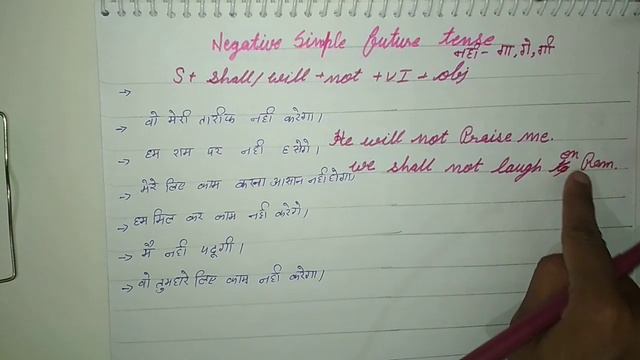 Negative Simple future tense
नही - गा, गे, गी
S + shall/will + not + VI + obj
→
→ वो मेरी तारीफ नही करेगा।
He will not Praise me.
→ हम राम पर नही हसेगे।
we shall not laugh on Ram.
→ मेरे लिए काम करना आसान नही होगा।
→ हम मिल कर काम नही करेगे।
→ मै नही पढूगी।
→ वो तुमहारे लिए काम नही करेगा।